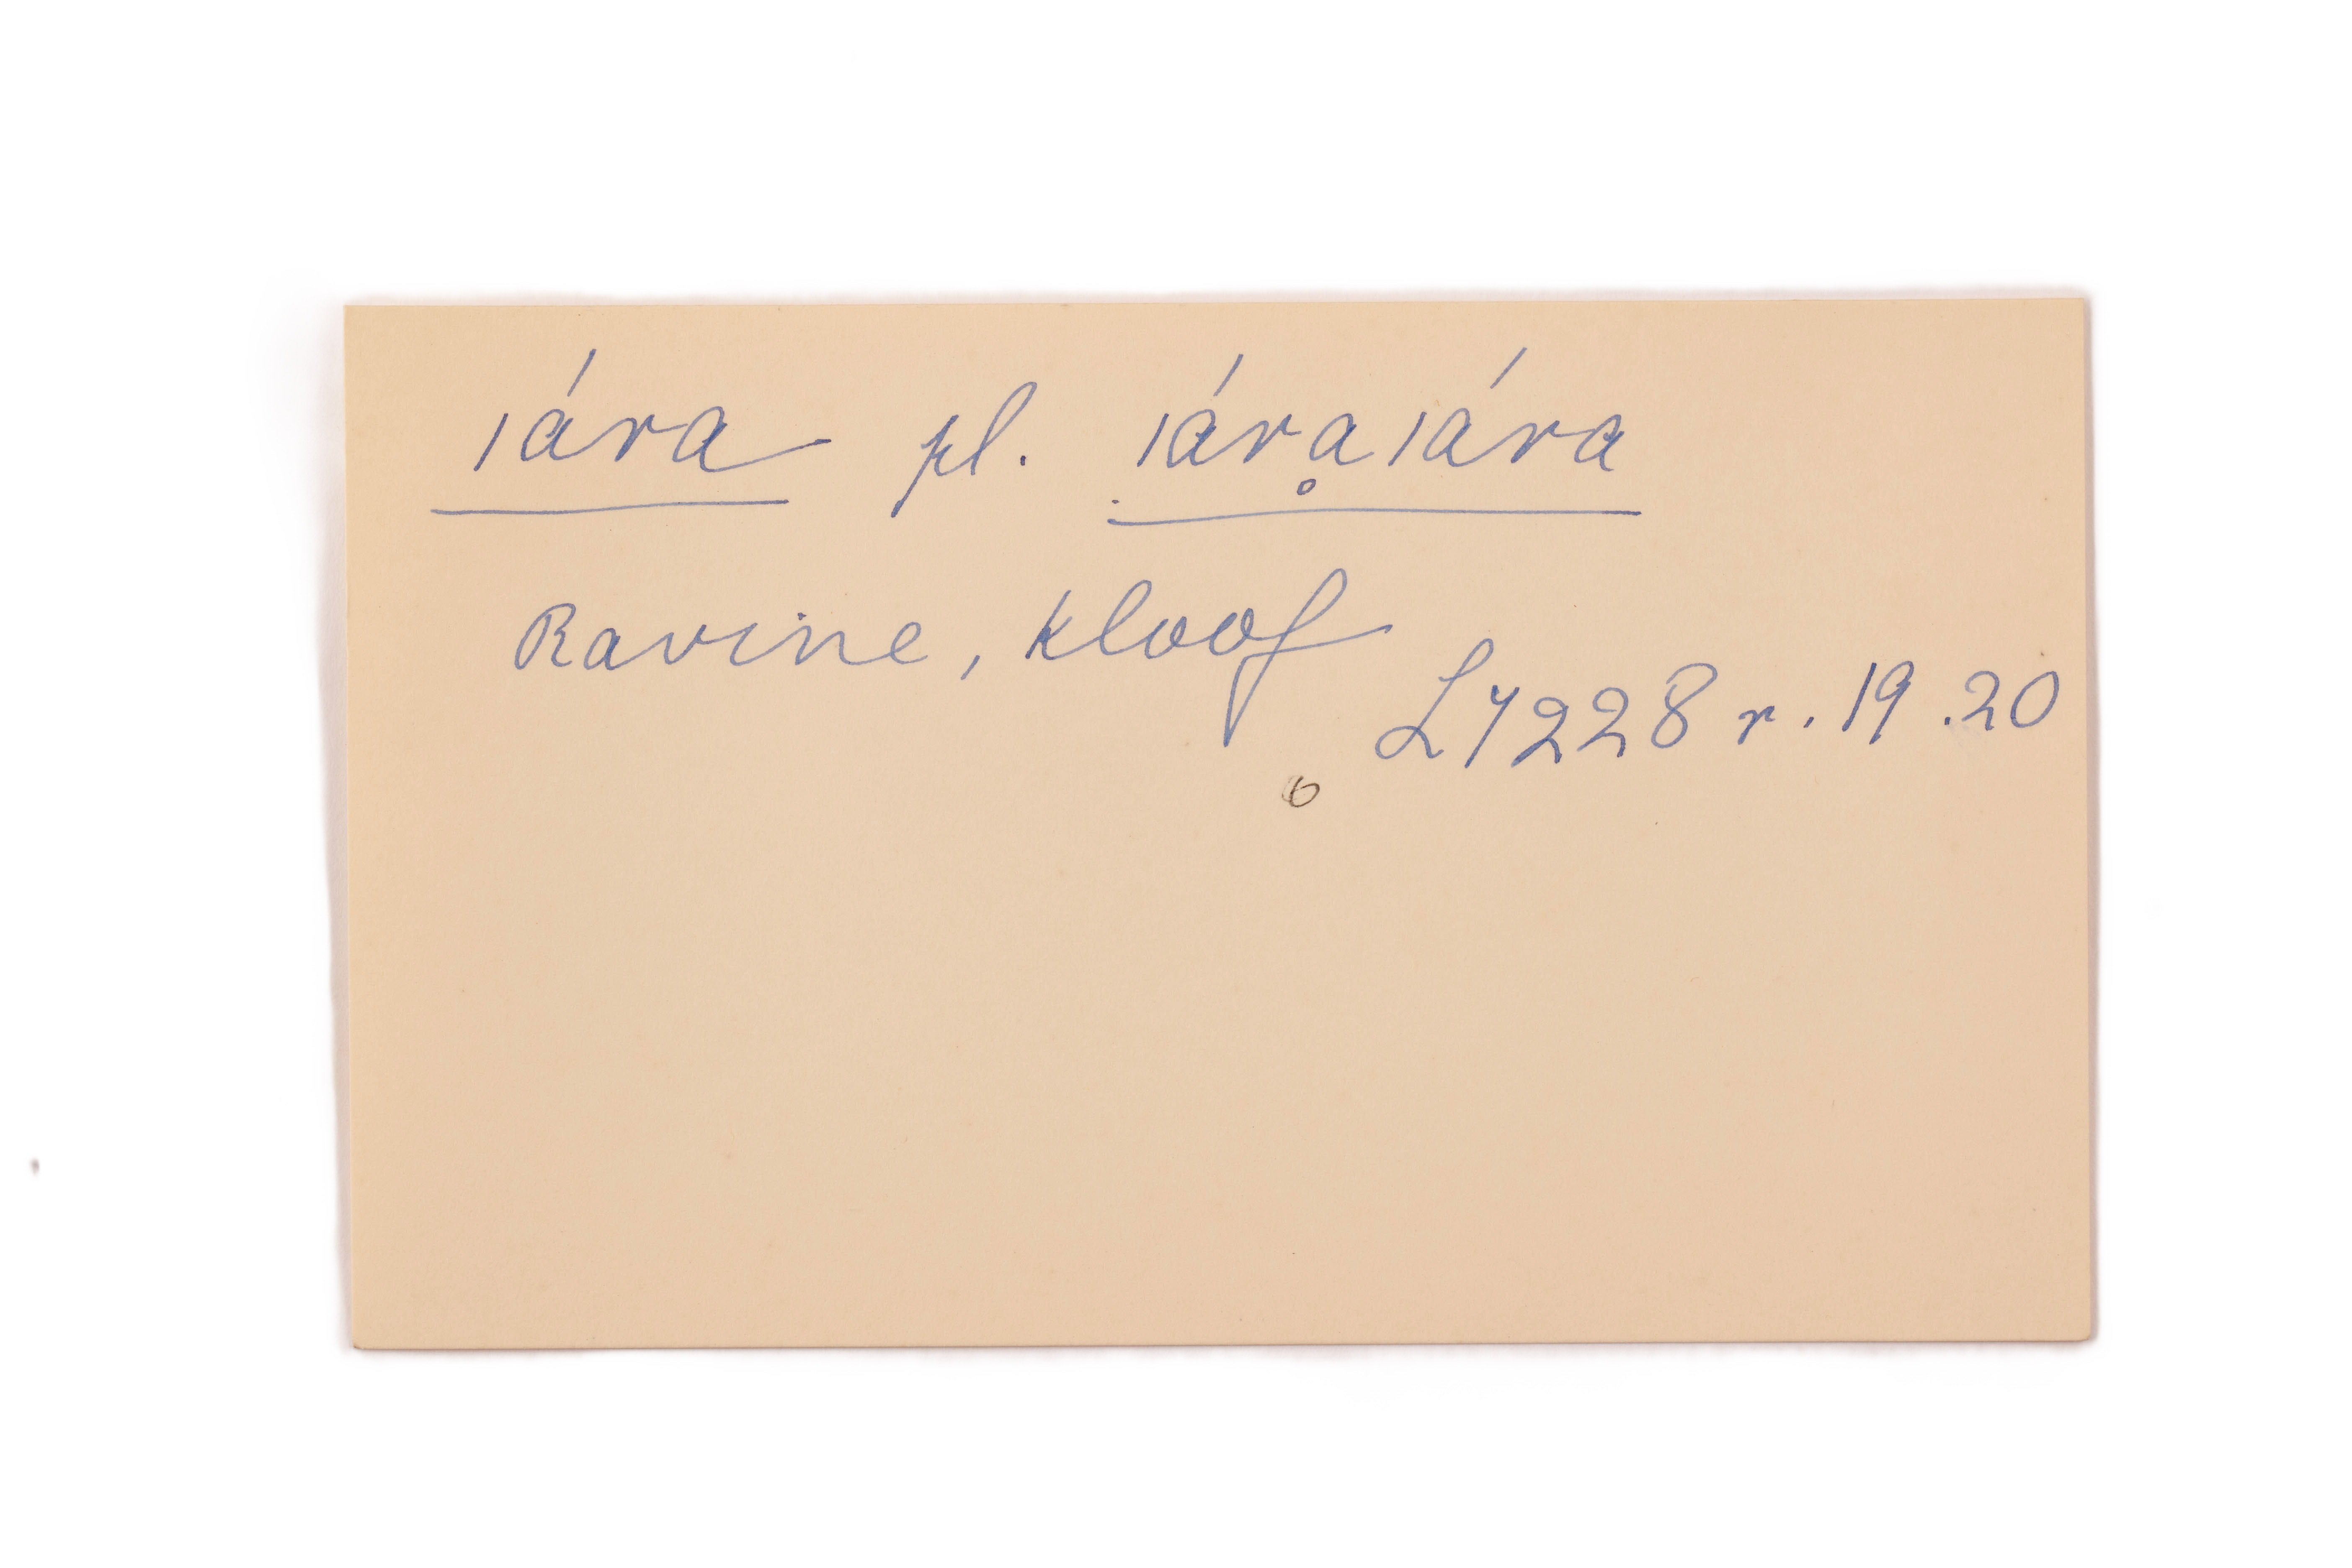 ǀára pl. ǀárḁǀára
Ravine, kloof
L7228 r. 19.20